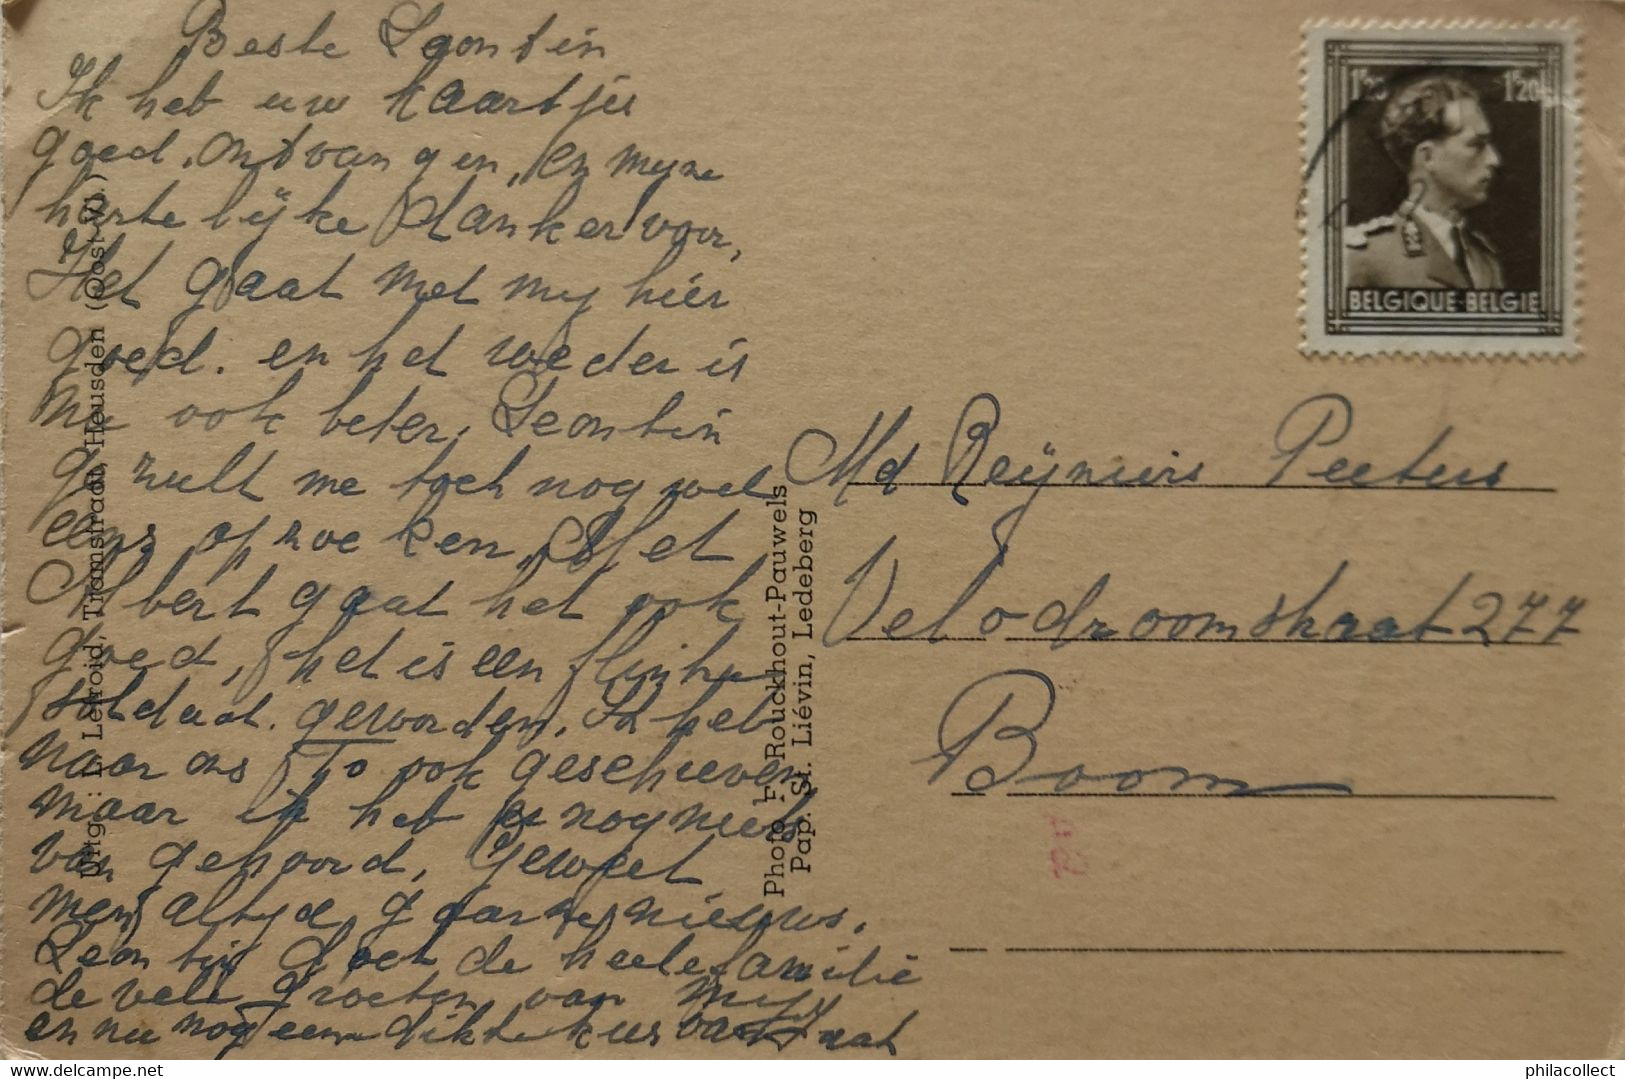 Beste Leontin
Ik heb uw kaartjes
goed, ontvangen, en myne
hartelijke dank ervoor,
Het gaat met my hier
goed. en het weder is
nu ook beter, Leontin
ge zult me toch nog wel
eens op zoeken, Met
Albert gaat het ook
goed, het is een flinke
soldaat. geworden, Ik heb
naar ons Jo ook geschreven
maar ik heb er nog niets
van gehoord, Ge weet
men altyd gaarne nieuws.
Leontin doet de heele familie
de vele groeten van my
en nu nog een dikke kus van
Uitg.: Lefroid, Tramstraat, Heusden (Oost-Vl.)
Photo F. Rouckhout-Pauwels
Pap. St. Liévin, Ledeberg
1F20 1F20
BELGIQUE·BELGIE
Md Reyniers Peeters
Velodroomstraat 277
Boom
philacollect - delcampe.net
philacollect